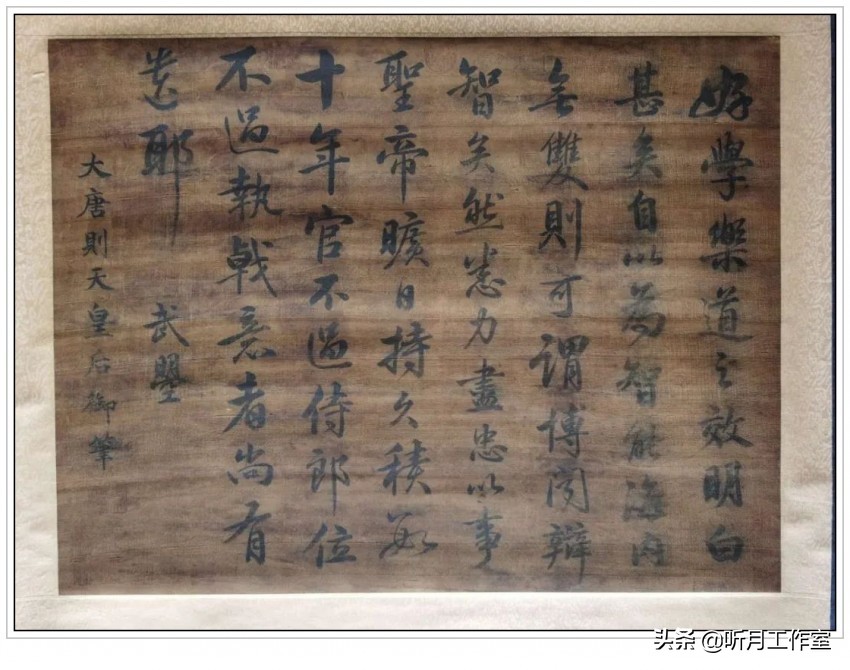 好學樂道之效明白
甚矣自以為智能海內
無雙則可謂博聞辯
智矣然悉力盡忠以事
聖帝曠日持久積數
十年官不過侍郎位
不過執戟意者尚有
遺耶 武曌
大唐則天皇后御筆
头条 @听月工作室